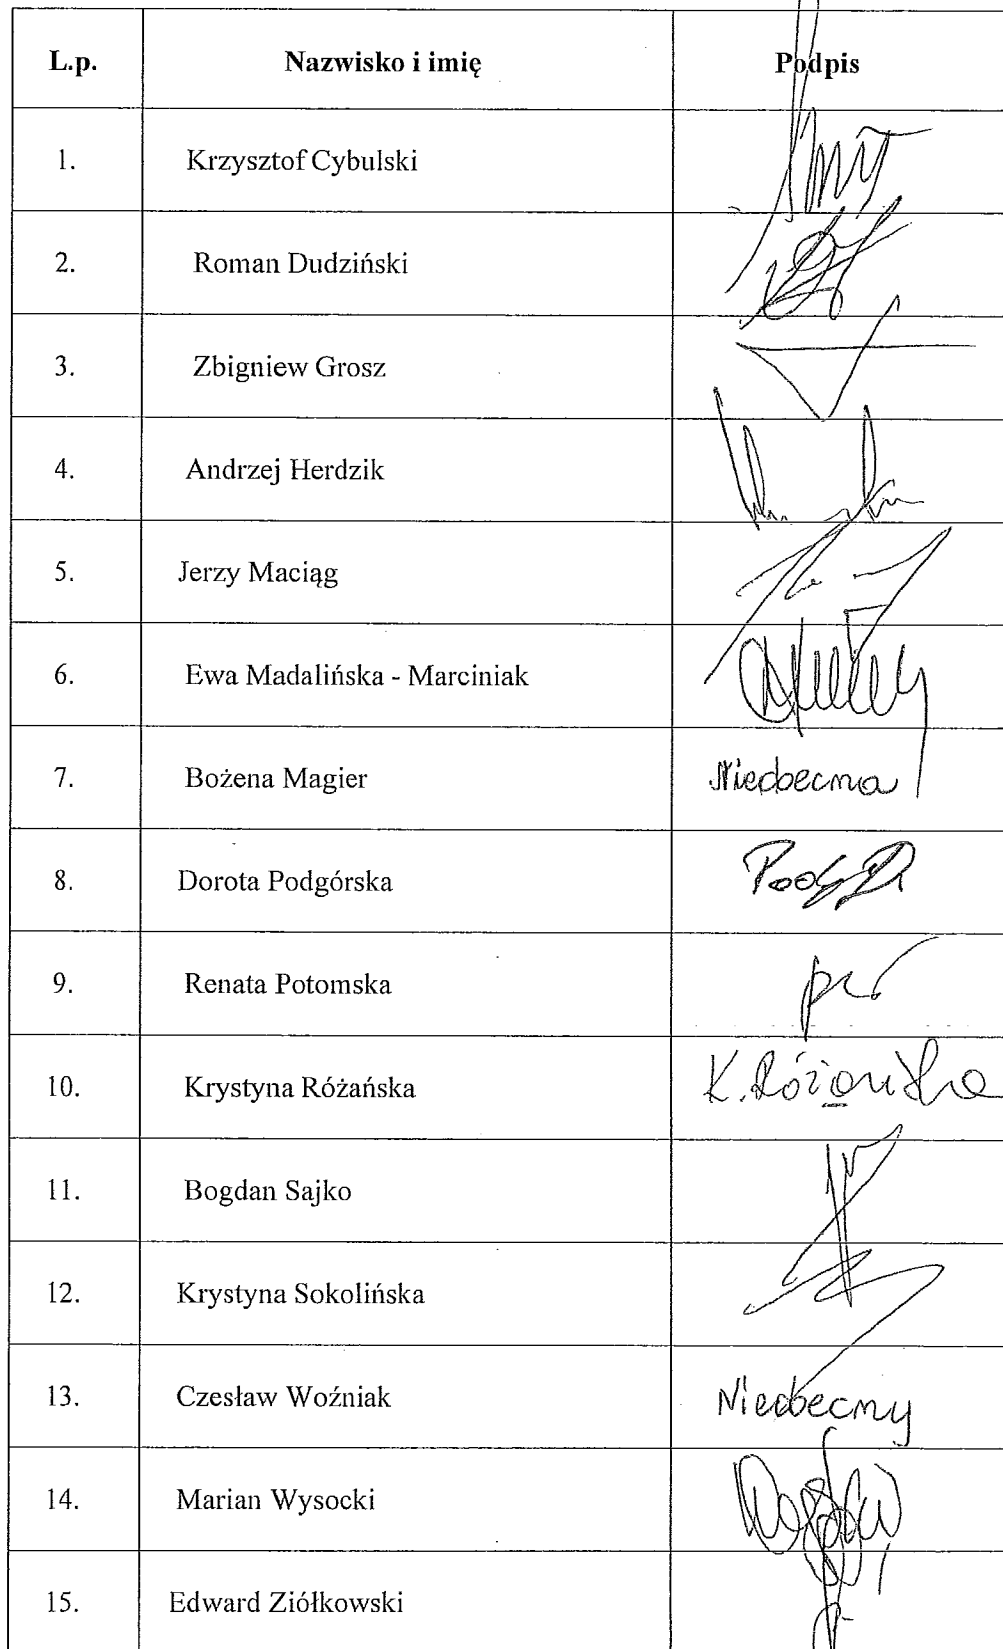 L.p. Nazwisko i imię Podpis
1. Krzysztof Cybulski
2. Roman Dudziński
3. Zbigniew Grosz
4. Andrzej Herdzik
5. Jerzy Maciąg
6. Ewa Madalińska - Marciniak
7. Bożena Magier Nieobecna
8. Dorota Podgórska
9. Renata Potomska
10. Krystyna Różańska K. Różańska
11. Bogdan Sajko
12. Krystyna Sokolińska
13. Czesław Woźniak Nieobecny
14. Marian Wysocki
15. Edward Ziółkowski